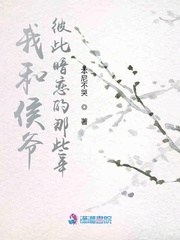 我和侯爷
彼此暗恋的那些年
木尼不哭
著
潇湘书院